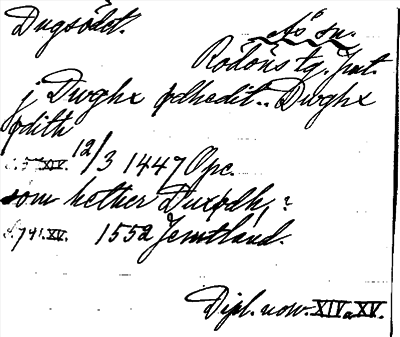 Dugsödet.
Ås sn.
Rödöns tg. Jmt.
j Dwghx ødhedit.. Dwghx
ødith
12/3 1447 Opc.
s. 57 XIV.
som hether Duxødh, ?
s. 741. XV. 1552 Jemtland.
Dipl. now. XIV a XV.